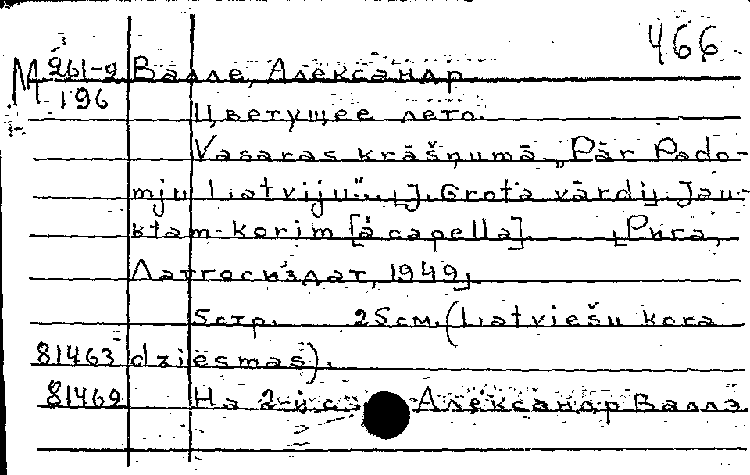 466
М 261-2 Валле, Александр.
196 Цветущее лето.
Vasaras krāšņumā „Pār Pado-
mju Latviju“... [J. Grota vārdi]. Jau-
ktam korim [a capella]. [Рига,
Латгосиздат, 1949].
5 стр. 25 см. (Latviešu kora
81463 dziesmas).
81469 На 2-й Александр Валлэ